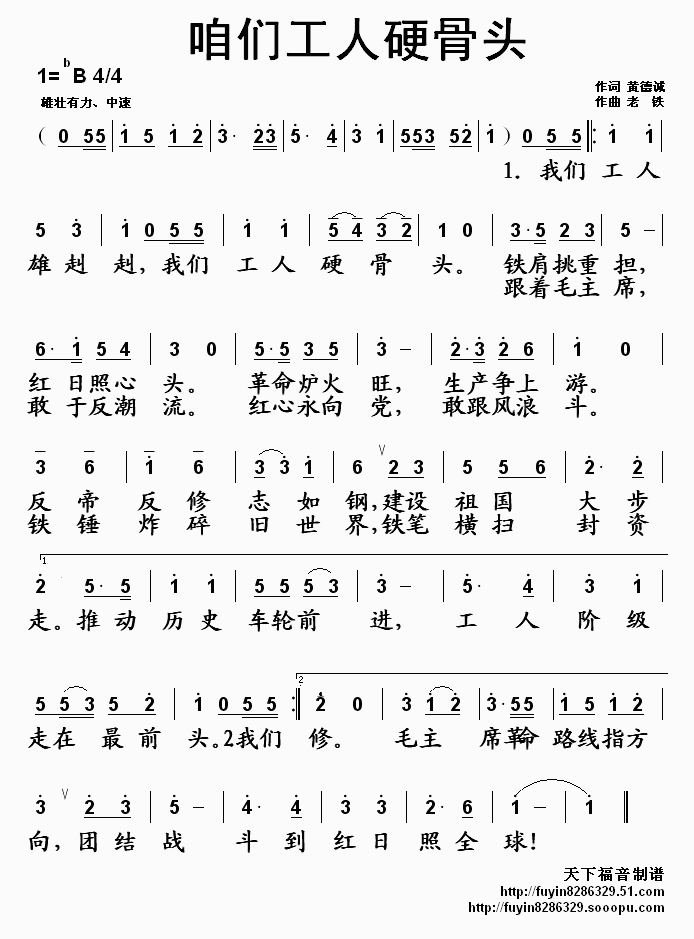 咱们工人硬骨头
1= ᵇB 4/4
作词 黄德诚
雄壮有力、中速
作曲 老 铁
( 0 5 5 | 1 5 1 2 | 3· 2 3 | 5· 4 | 3 1 | 5 5 3 5 2 | 1 ) 0 5 5 ‖: 1 1 |
1. 我们 工 人
5 3 | 1 0 5 5 | 1 1 | 5 4 3 2 | 1 0 | 3· 5 2 3 | 5 - |
雄 赳 赳, 我们 工 人 硬 骨 头。 铁肩挑重 担,
跟着毛主 席,
6· 1 5 4 | 3 0 | 5· 5 3 5 | 3 - | 2· 3 2 6 | 1 0 |
红 日照心 头。 革命炉火 旺, 生产争上 游。
敢 于反潮 流。 红心永向 党, 敢跟风浪 斗。
3 6 | 1 6 | 3 3 1 | 6 ∨ 2 3 | 5 5 6 | 2· 2 |
反 帝 反 修 志 如 钢,建设 祖 国 大 步
铁 锤 炸 碎 旧 世 界,铁笔 横 扫 封 资
1
2 5· 5 | 1 1 | 5 5 5 3 | 3 - | 5· 4 | 3 1 |
走。推动 历 史 车轮前 进, 工 人 阶 级
2
5 5 3 5 2 | 1 0 5 5 :‖ 2 0 | 3 1 2 | 3· 5 5 | 1 5 1 2 |
走在 最 前 头。2我们 修。 毛主 席革命 路线指方
3 ∨ 2 3 | 5 - | 4· 4 | 3 3 | 2· 6 | 1 - 1 ‖
向, 团结 战 斗 到 红日 照全 球!
天下福音制谱
http://fuyin8286329.51.com
http://fuyin8286329.sooopu.com